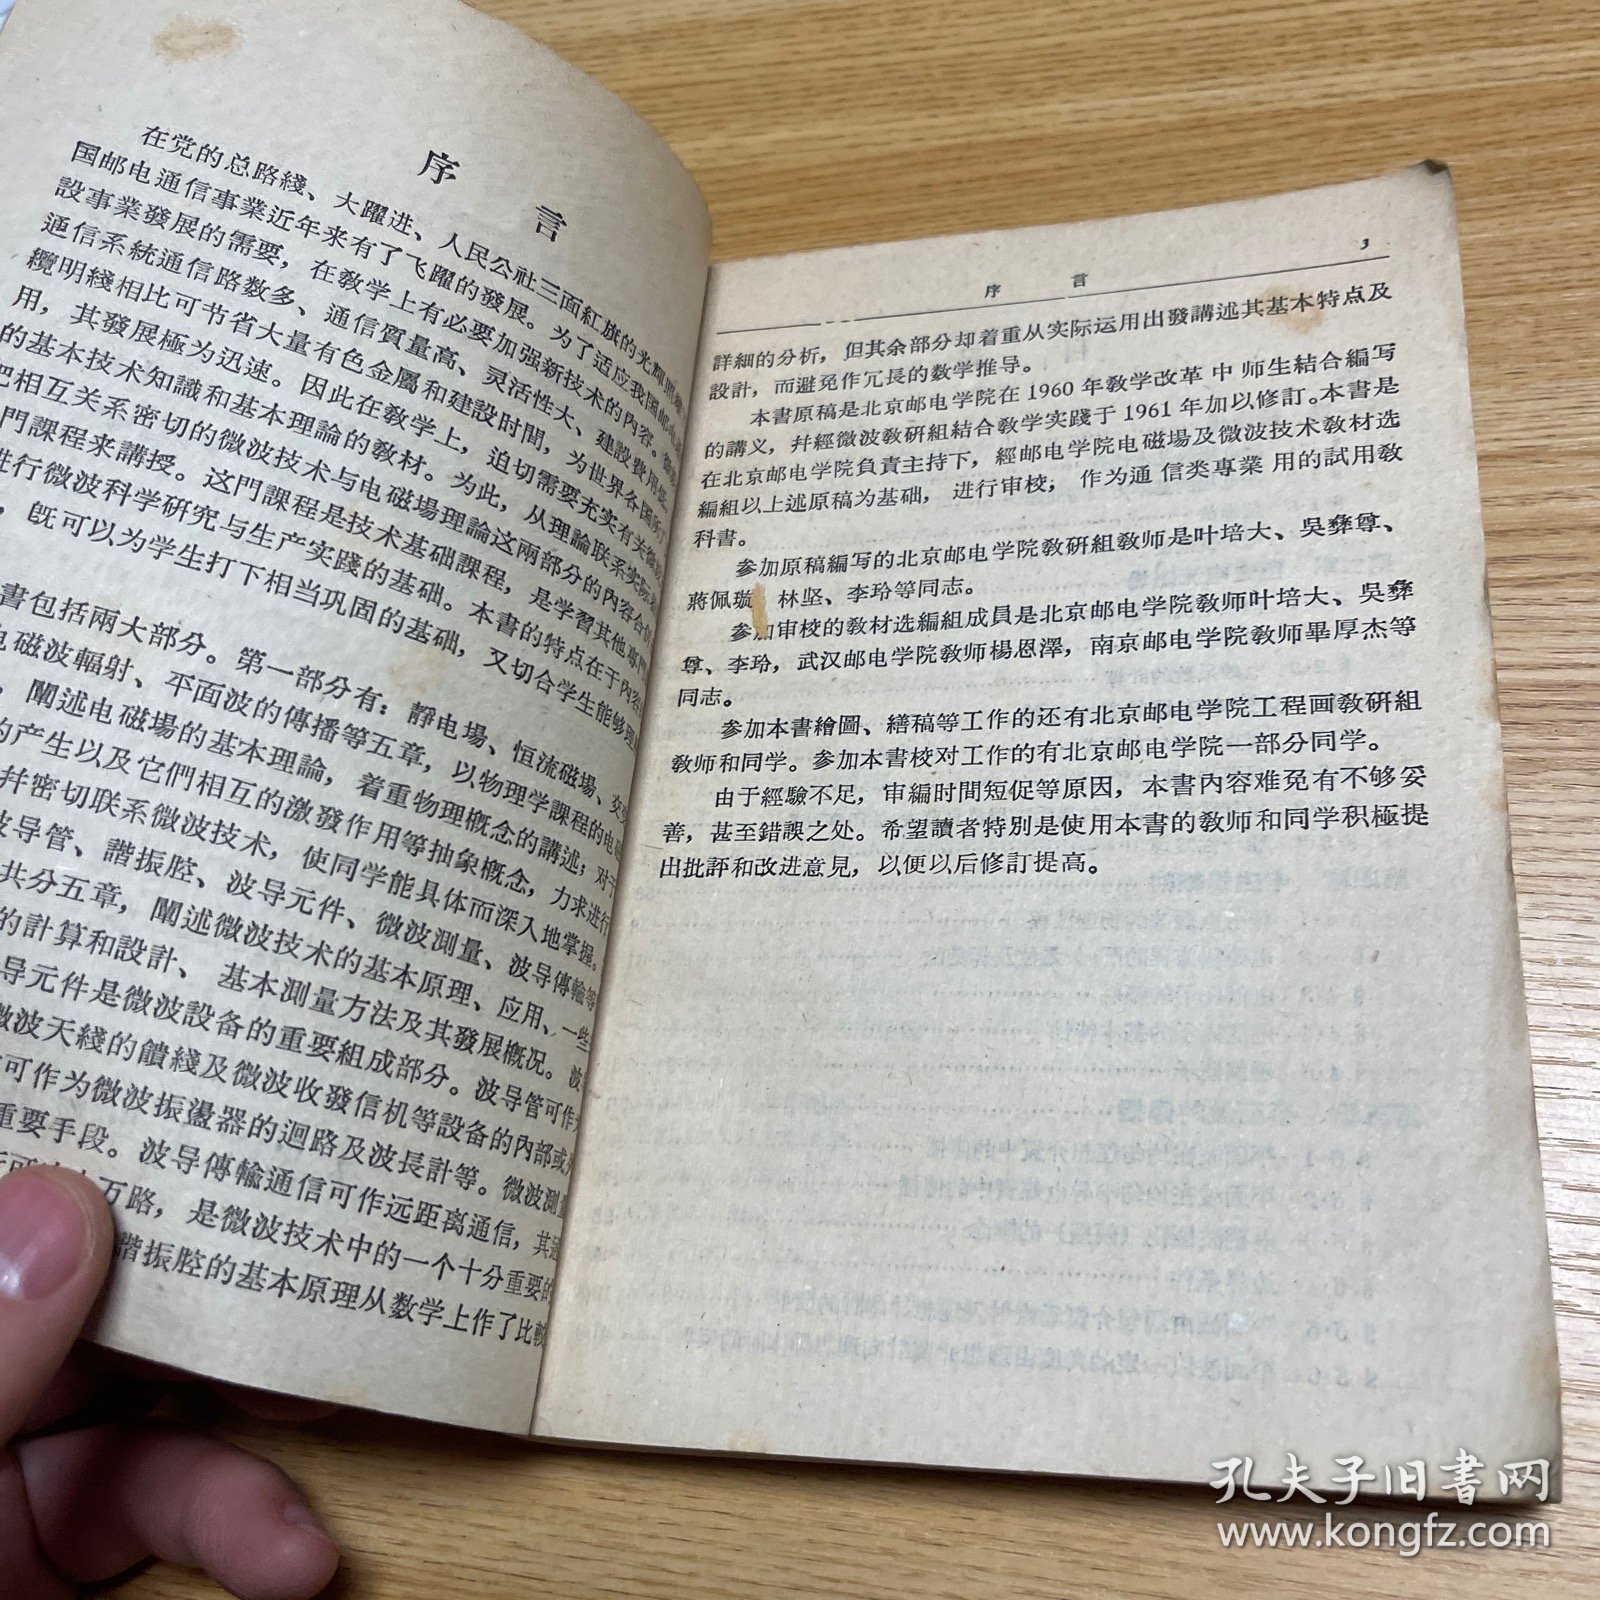 序 言
在党的总路綫、大躍进、人民公社三面紅旗的光輝照
国邮电通信事業近年来有了飞躍的發展。为了适应我国邮电
設事業發展的需要，在敎学上有必要加强新技术的內容。
通信系統通信路数多、通信質量高、灵活性大、建設費用
纜明綫相比可节省大量有色金屬和建設时間，为世界各国所
用，其發展極为迅速。因此在敎学上，迫切需要充实有关微
的基本技术知識和基本理論的敎材。为此，从理論联系实际
把相互关系密切的微波技术与电磁場理論这兩部分的內容合
門課程来講授。这門課程是技术基础課程，是学習其他專門
进行微波科学研究与生产实踐的基础。本書的特点在于內容
，旣可以为学生打下相当巩固的基础，又切合学生能够理
書包括兩大部分。第一部分有：靜电場、恒流磁場、交
电磁波輻射、平面波的傳播等五章，以物理学課程的电磁
，闡述电磁場的基本理論，着重物理概念的講述；对于
的产生以及它們相互的激發作用等抽象概念，力求进行
幷密切联系微波技术，使同学能具体而深入地掌握。
波导管、諧振腔、波导元件、微波測量、波导傳輸等
共分五章，闡述微波技术的基本原理、应用、一些
的計算和設計、基本測量方法及其發展概况。波
导元件是微波設备的重要組成部分。波导管可作
微波天綫的饋綫及微波收發信机等設备的內部或
可作为微波振盪器的迴路及波長計等。微波測量
重要手段。波导傳輸通信可作远距离通信，其通
万路，是微波技术中的一个十分重要的
諧振腔的基本原理从数学上作了比較
序 言 3
詳細的分析，但其余部分却着重从实际运用出發講述其基本特点及
設計，而避免作冗長的数学推导。
本書原稿是北京邮电学院在1960年敎学改革中师生結合編写
的講义，幷經微波敎研組結合敎学实踐于1961年加以修訂。本書是
在北京邮电学院負責主持下，經邮电学院电磁場及微波技术敎材选
編組以上述原稿为基础，进行审校；作为通信类專業用的試用敎
科書。
参加原稿編写的北京邮电学院敎研組敎师是叶培大、吳彝尊、
蔣佩璇、林坚、李玲等同志。
参加审校的敎材选編組成員是北京邮电学院敎师叶培大、吳彝
尊、李玲，武汉邮电学院敎师楊恩澤，南京邮电学院敎师畢厚杰等
同志。
参加本書繪圖、繕稿等工作的还有北京邮电学院工程画敎研組
敎师和同学。参加本書校对工作的有北京邮电学院一部分同学。
由于經驗不足，审編时間短促等原因，本書內容难免有不够妥
善，甚至錯誤之处。希望讀者特別是使用本書的敎师和同学积極提
出批評和改进意見，以便以后修訂提高。
孔夫子旧書网
www.kongfz.com